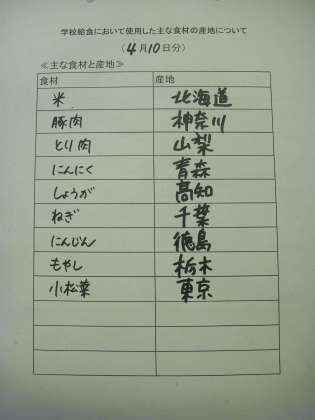 学校給食において使用した主な食材の産地について
（4月10日分）
≪主な食材と産地≫
食材 産地
米 北海道
豚肉 神奈川
とり肉 山梨
にんにく 青森
しょうが 高知
ねぎ 千葉
にんじん 徳島
もやし 栃木
小松菜 東京